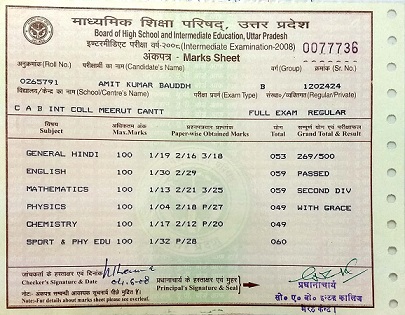 माध्यमिक शिक्षा परिषद्, उत्तर प्रदेश
Board of High School and Intermediate Education, Uttar Pradesh
इण्टरमीडिएट परीक्षा वर्ष-२००८ (Intermediate Examination-2008) 0077736
अंकपत्र - Marks Sheet
अनुक्रमांक (Roll No.) परीक्षार्थी का नाम (Candidate's Name) वर्ग (Group) क्रमांक (Sr. No.)
0265791 AMIT KUMAR BAUDDH B 1202424
विद्यालय/केन्द्र का नाम (School/Centre's Name) परीक्षा प्रकार (Exam Type) संस्थागत/व्यक्तिगत (Regular/Private)
C A B INT COLL MEERUT CANTT FULL EXAM REGULAR
विषय अधिकतम अंक प्रश्नपत्रवार प्राप्तांक योग सम्पूर्ण योग एवं परीक्षाफल
Subject Max.Marks Paper-wise Obtained Marks Total Grand Total & Result
GENERAL HINDI 100 1/19 2/16 3/18 053 269/500
ENGLISH 100 1/30 2/29 059 PASSED
MATHEMATICS 100 1/13 2/21 3/25 059 SECOND DIV
PHYSICS 100 1/04 2/18 P/27 049 WITH GRACE
CHEMISTRY 100 1/17 2/12 P/20 049
SPORT & PHY EDU 100 1/32 P/28 060
जांचकर्ता के हस्ताक्षर एवं दिनांक
Checker's Signature & Date
प्रधानाचार्य के हस्ताक्षर एवं मुहर
Principal's Signature & Seal
प्रधानाचार्य
सी० ए० बी० इन्टर कालिज
मेरठ कैन्ट।
नोट:- अंकपत्र सम्बन्धी आवश्यक सूचनायें पीछे मुद्रित हैं।
Note:-For details about marks sheet please see overleaf.